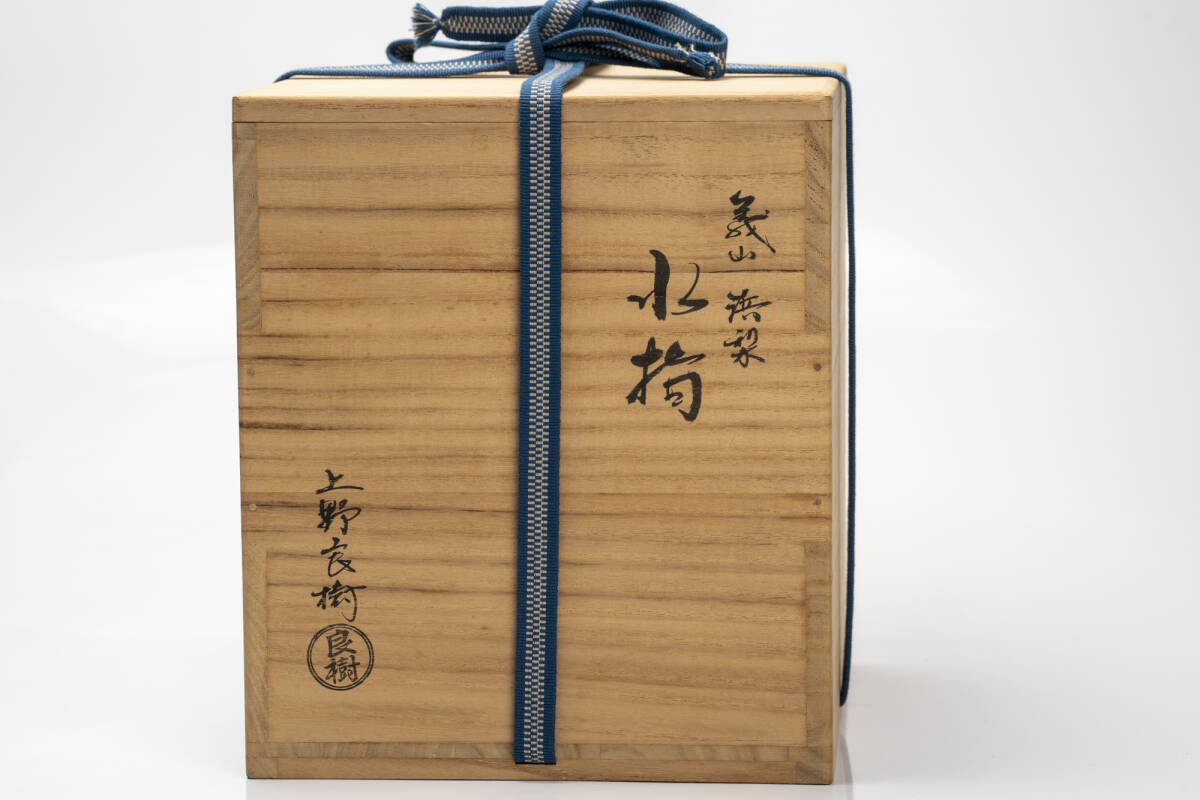 義山 浜梨
水指
上野良樹
良樹